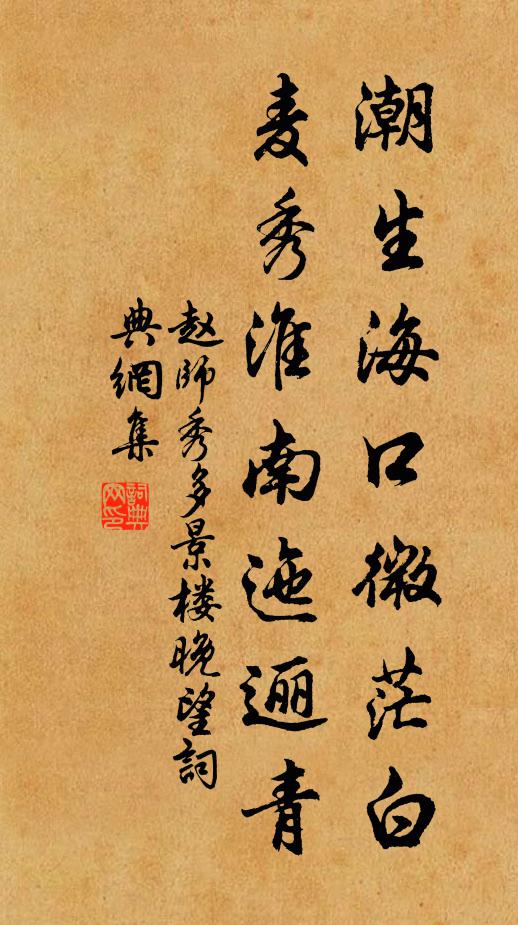 潮生海口微茫白
麦秀淮南迤逦青
赵师秀多景楼晚望词
典網集
詞典
网印